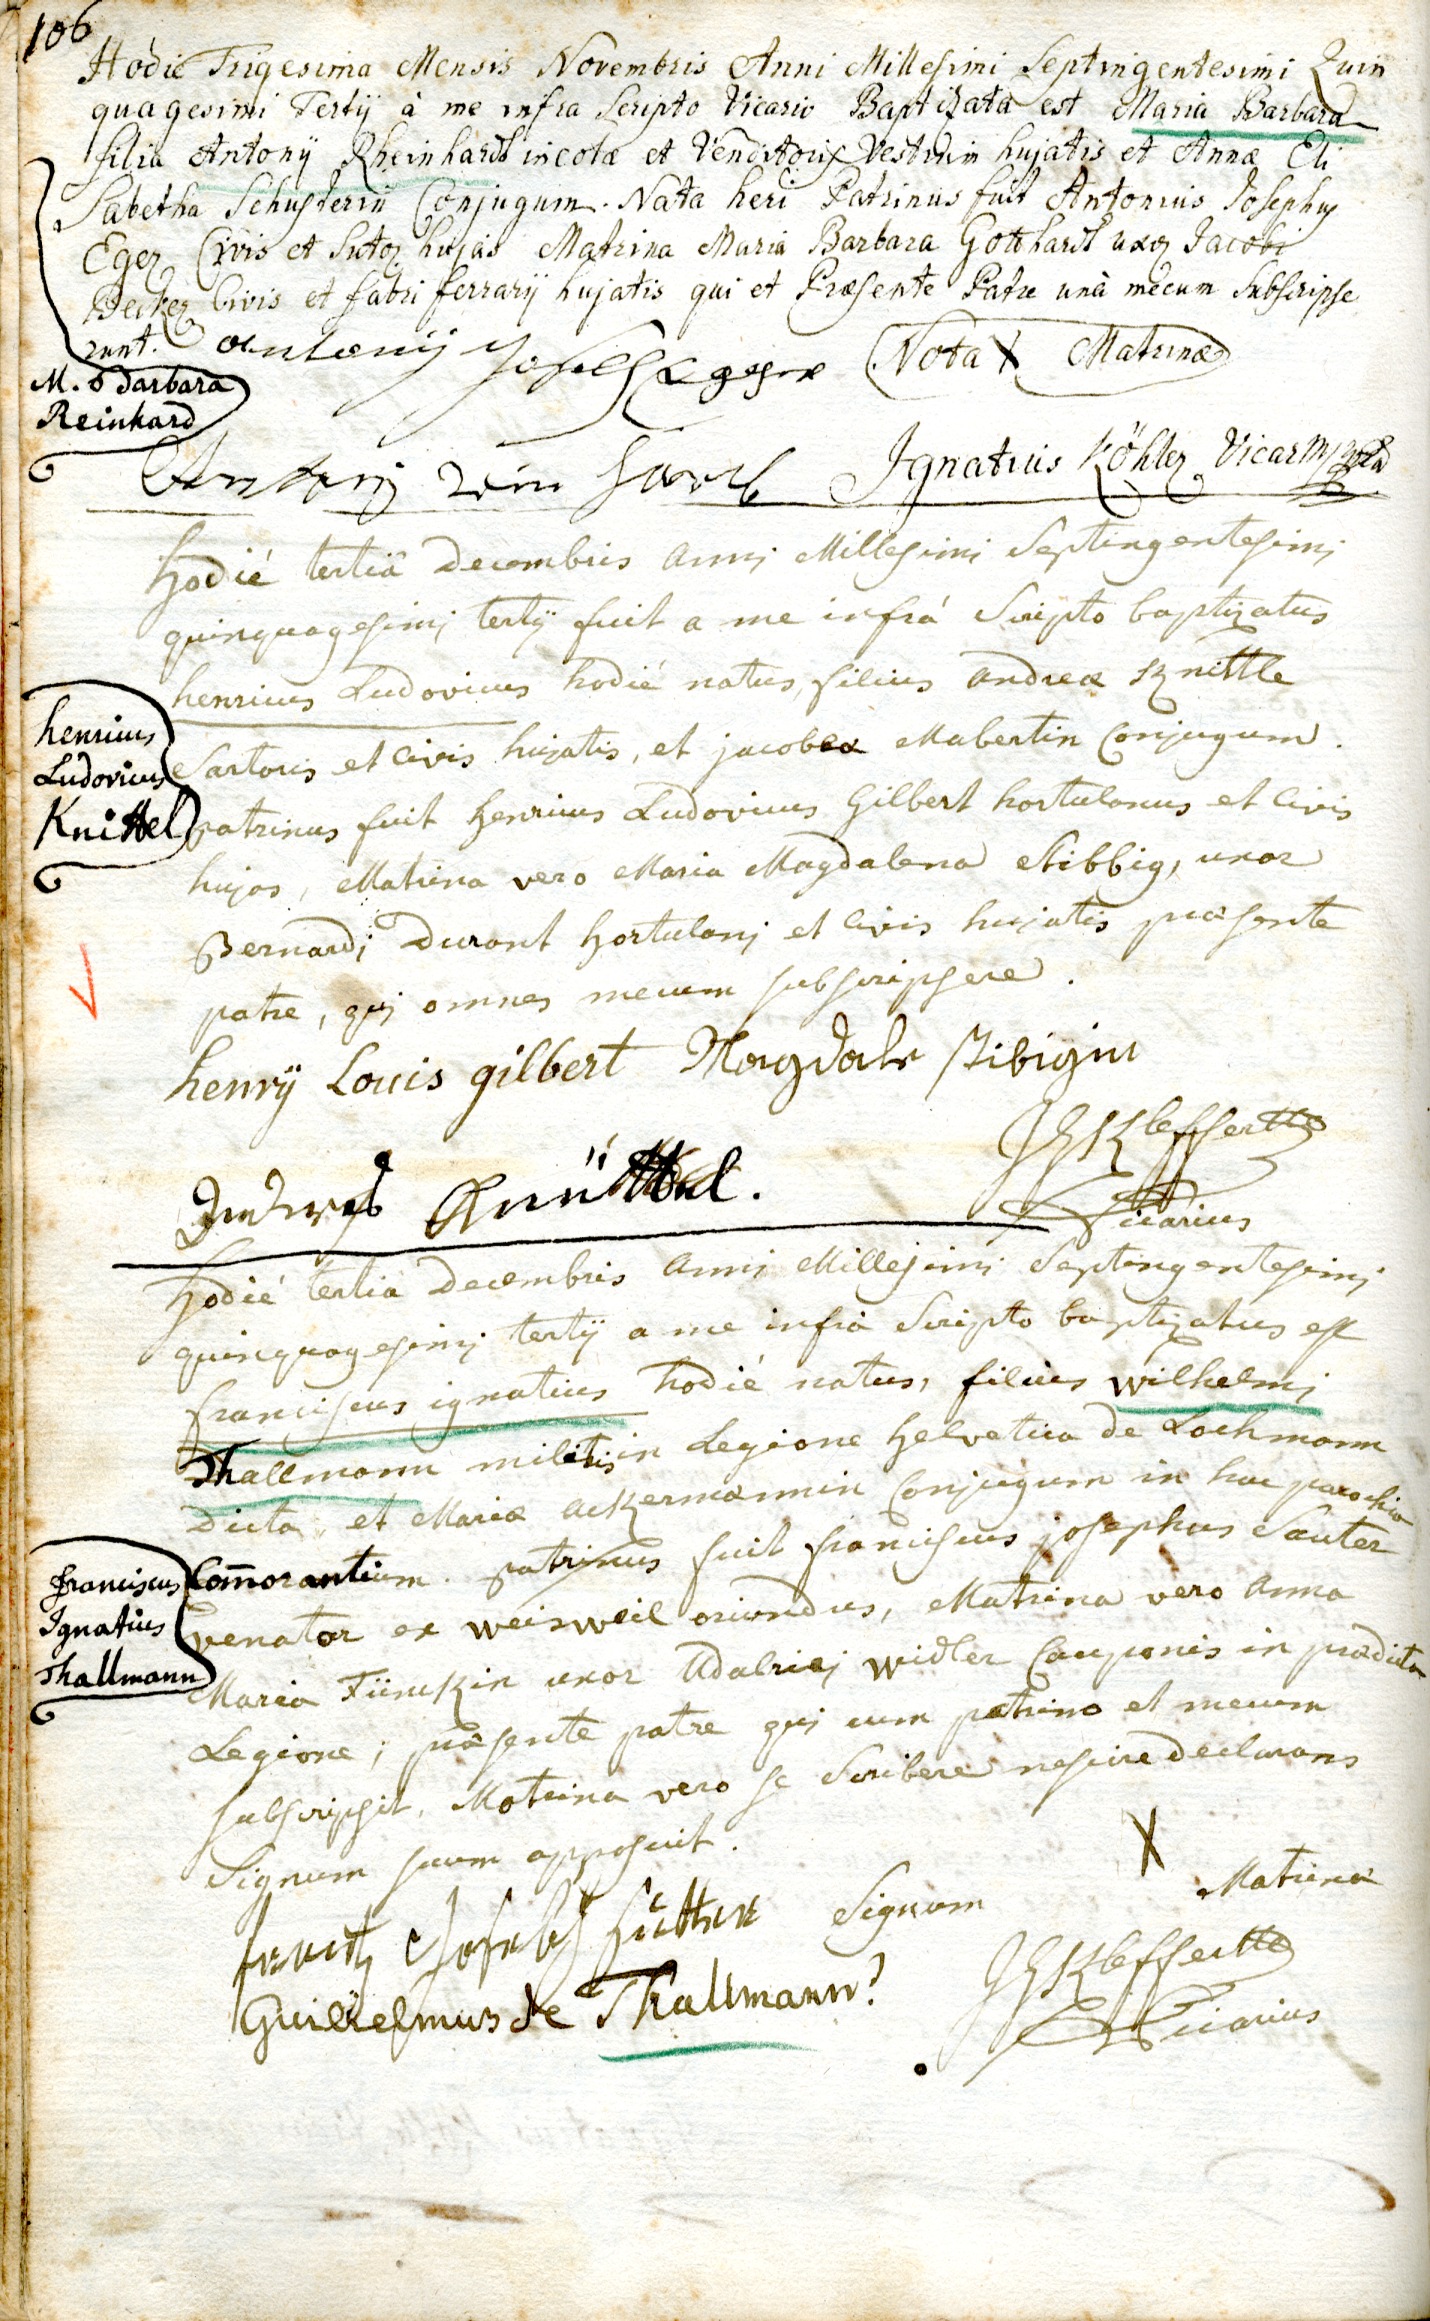 106
Hodie Trigesima Mensis Novembris Anni Millesimi Septingentesimi Quin
quagesimi Tertÿ à me infra Scripto Vicario Baptizata est Maria Barbara
filia Antonÿ Rheinhardt incolæ et Venditoris Vestium hujatis et Annæ Eli
Sabetha Schusterin Conjugum. Nata heri Patrinus fuit Antonius Josephus
Eger Civis et Sutor hujas Matrina Maria Barbara Gotthardt uxor Jacobi
Becker Civis et fabri ferrarÿ hujatis qui et Præsente Patre unà mecum Subscripse
runt. antoni Joseph Egger Nota X Matrinæ
M. Barbara
Reinhard
Antoni Rein hard Ignatius Köhler Vicar
hodié tertiâ decembris annj Millesimi Septingentesimj
quinquagesimj tertÿ fuit a me infrá Scripto baptizatus
henricus Ludovicus hodié natus, filius andreæ Knittle
Sartoris et Civis hujatis, et jacobea Mabertin Conjugum.
patrinus fuit henricus Ludovicus Gilbert hortulanus et Civis
hujas, Matrina vero Maria Magdalena Stibbig, uxor
Bernardj Durant hortulanj et Civis hujatis præsente
patre, quj omnes mecum subscripsere.
henricus
Ludovicus
Knittel
henrÿ Louis gilbert Magdale stibigin
Knüttel.
Kleffertt
Vicarius
hodié tertiâ decembris annj Millesimi Septingentesimj
quinquagesimj tertÿ a me infrá Scripto baptizatus est
franciscus ignatius hodié natus, filius wilhelmj
Thallmann militis in Legione helvetica de Lochmann
dicta, et Mariæ ackermannin Conjugum in hac parochia
Com̄orantium. patrinus fuit franciscus josephus Sauter
venator ex weisweil oriundus, Matrina vero anna
Maria Fünckin uxor Udalricj widler Cauponis in prædicta
Legione; præsente patre quj cum patrino et mecum
subscripsit, Matrina vero se Scribere nescire declarans
Signum suum apposuit.
franciscus
Ignatius
Thallmann
X
frantz Joseph Sutter Signum Matrinæ
Guilielmus de Thallmann?
Kleffertt
Vicarius